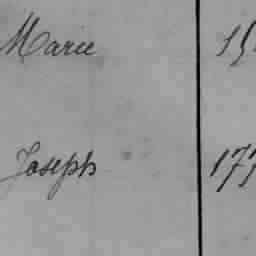 Marie
Joseph 177